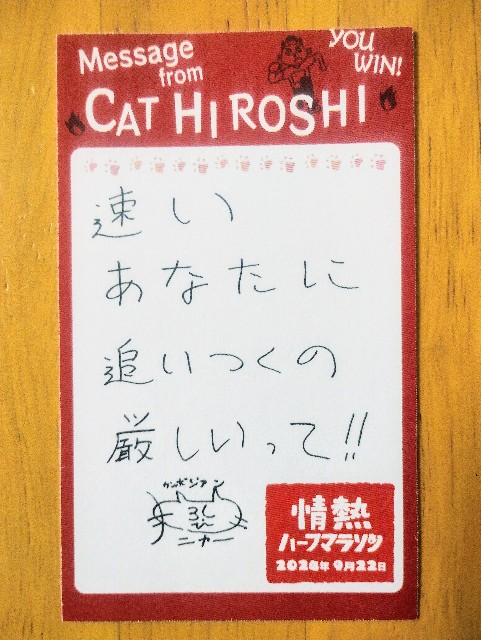 Message
from
YOU
WIN!
CAT HIROSHI
速い
あなたに
追いつくの
厳しいって!!
カンボジアン
ニャー
情熱
ハーフマラソン
2024年9月22日